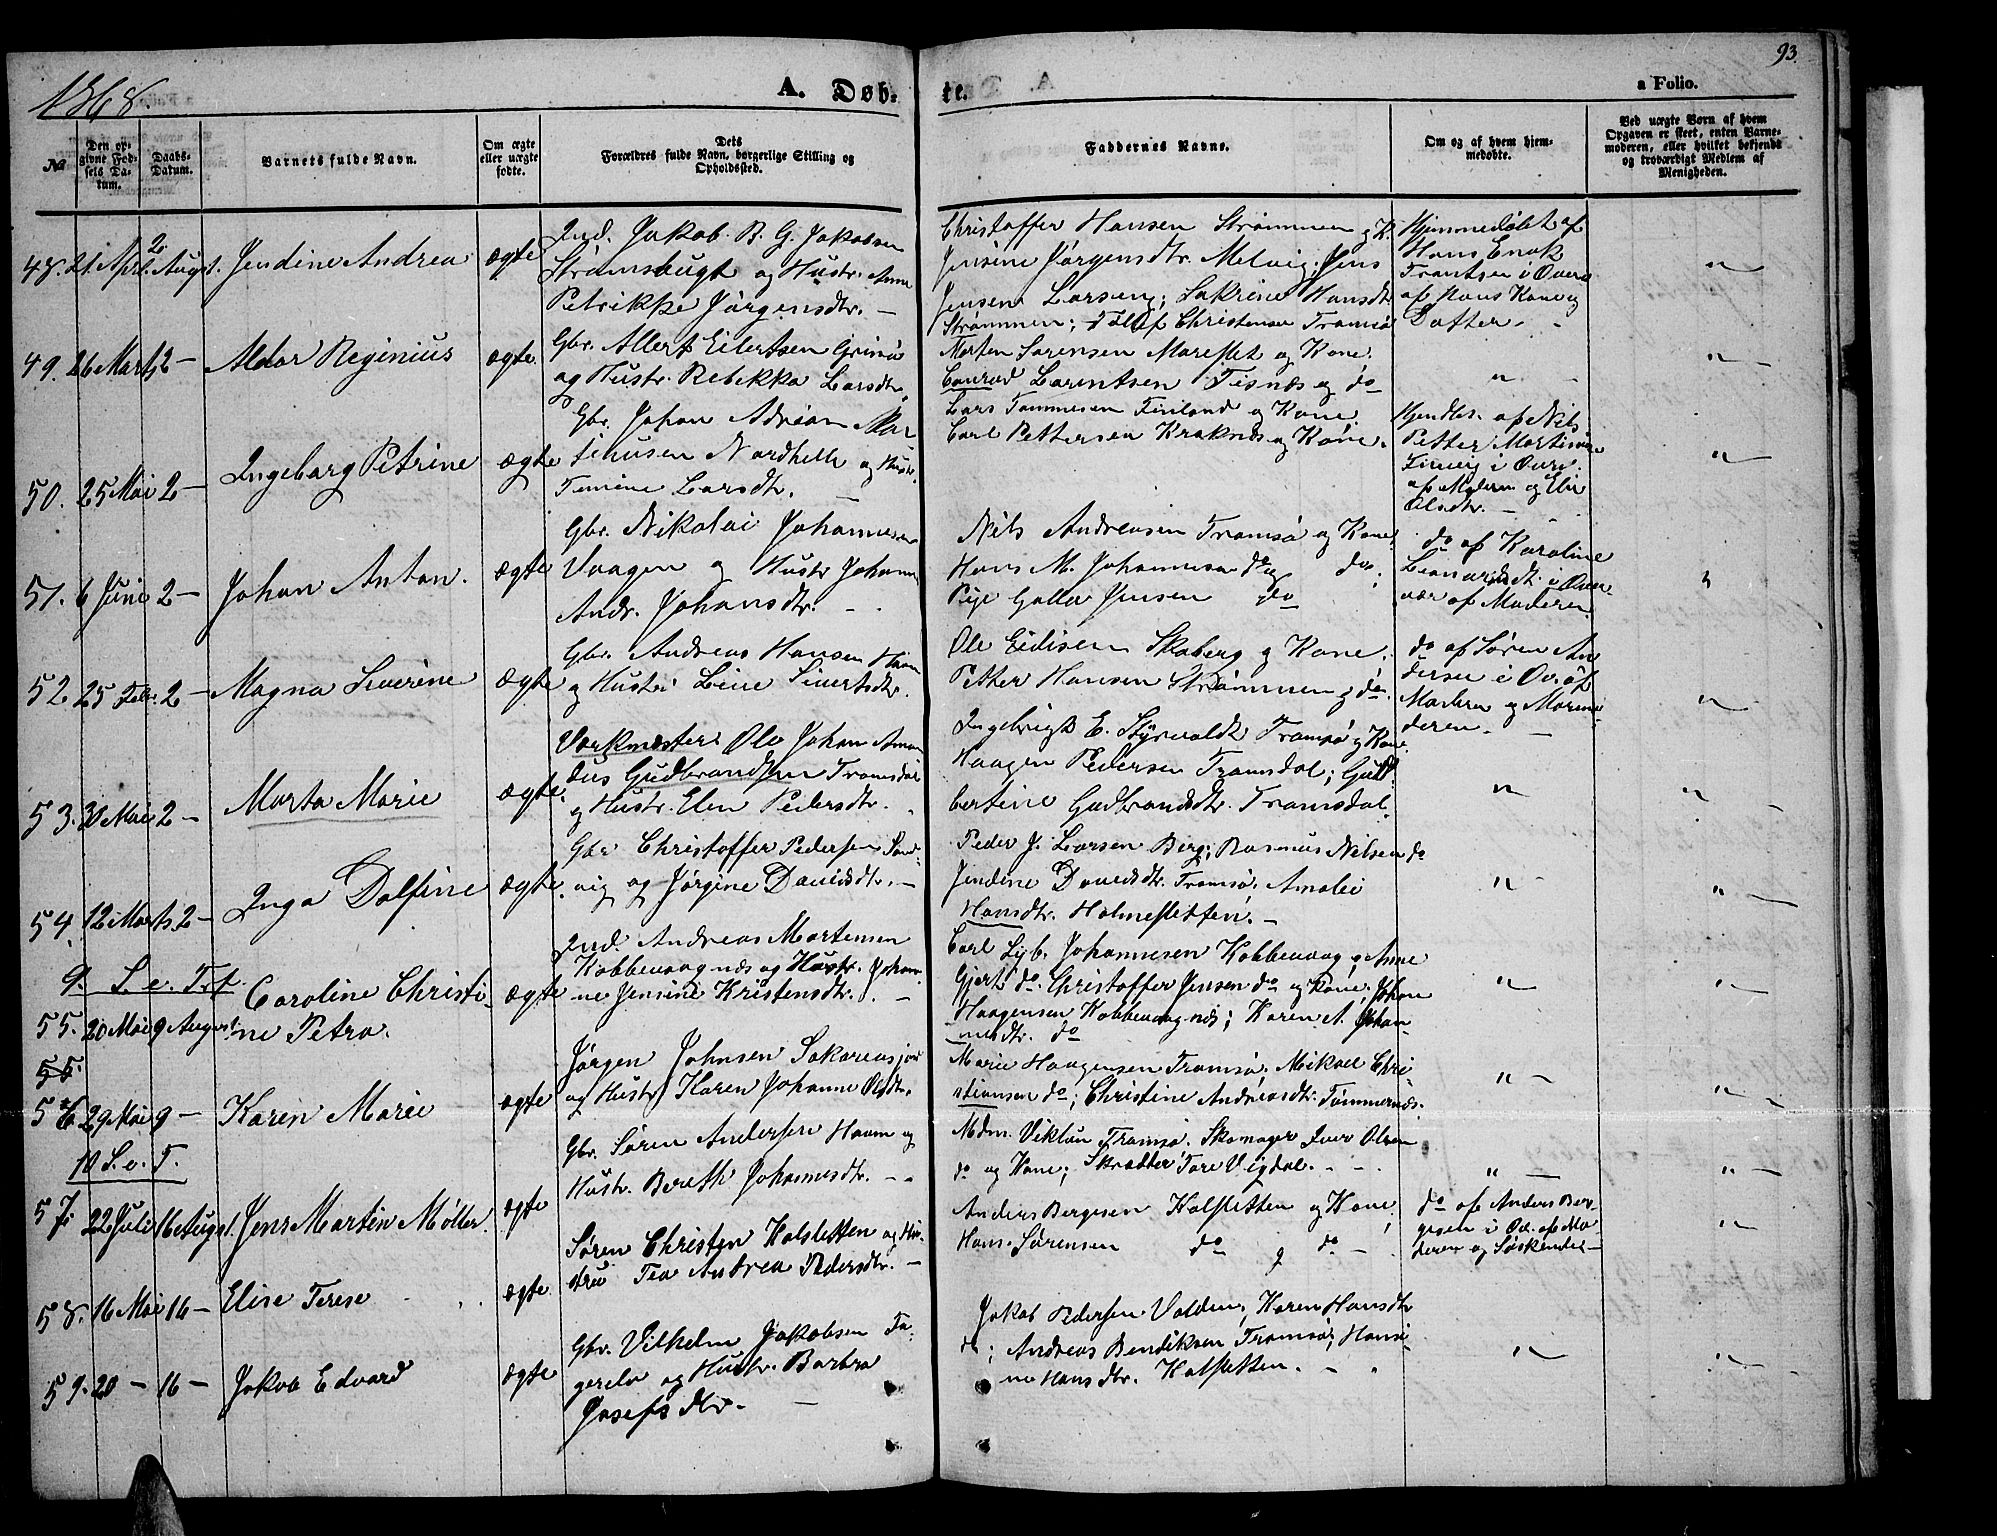 1868
A. Døb-
te.
93.
a Folio.
№
Den op-
givne Fød-
sels Da-
tum.
Daabs-
Datum.
Barnets fulde Navn.
Om ægte
eller uægte
fødte.
Dets
Forældres fulde Navn, borgerlige Stilling og
Opholdssted.
Faddernes Navne.
Om og af hvem hjem-
medøbte.
Ved uægte Børn af hvem
Opgaven er skeet, enten Barne-
moderen, eller hvilket bekjendt
og troværdigt Medlem af
Menigheden.
48. 21. April 2 August. Jendine Andrea ægte
Ind. Jakob B. G. Jakobsen
Strømsbugt og Hustr. Anne
Petrikke Jørgensdtr. —
Christoffer Hansen Strømmen og K.
Jensine Jørgensdtr. Melvig; Jens
Jensen Larseng; Sakrine Hansdtr
Strømmen; Christensen Tromsø
Hjemmedøbt af
Hans Enok
Frantsen i Overv.
af Hans Kone og
Datter. -
49. 26 Marts 2 - Aldor Reginius ægte
Gbr. Allert Eilertsen Grinø
og Hustr. Rebikka Larsdtr.
Morten Sørensen Moreslet og Kone.
Conrad Lorentsen Tisnæs og do
50. 25 Mai 2 - Ingeborg Petrine ægte
Gbr. Johan Adrian Mar
tinusen Nordhella og Hustr.
Larsdtr. —
Lars Tommesen Finland og Kone
Carl Pettersen Kraknæs og Kone.
Hjemdbt. af Nils
Petter Mortinsen
i Overv.
af Moderen og Elie
Olsdtr. -
51. 6 Juni 2 - Johan Anton. ægte
Gbr. Nikolai Johannesen
Vaagen og Hustr Johanna
Andr. Johansdtr. -
Nils Andreasen Tromsø og Kone,
Hans M. Johannesen do og do;
Jensen do
do af Karoline
Leonardsdt. i Over-
vær af Moderen.
52. 25 Febr. 2 - Magna Severine ægte
Gbr. Andreas Hansen Havn
og Hustr. Leine Sivertsdtr.
Ole Eidisen Skaberg og Kone;
Petter Hansen Strømmen og do.
do af Søren An
dersen i Ov. af
og
deren. —
53. 30 Mai 2 - Marta Marie ægte.
Værkmester Ole Johan Aman
dus Gudbrandsen Tromsdal
og Hustr. Elen Pedersdtr.
Ingebrigt E. Styrvoldt Tromsø og Kone
Haagen Pedersen Tromsdal; Gud
bertine Gudbrandsdtr. Tromsdal.
54. 12 Marts 2 - Inga Dolfine ægte.
Gbr Christoffer Pedersen Sand-
vig og Jørgine Davidsdtr. -
Peder J. Larsen Berg; Rasmus Nilsen do
Jendine Davidsdtr. Tromsø; Amalie
Hansdtr. Holmesletten. -
9. S. e. Trf.
55. 20 Mai 9 August Caroline Christi-
ne Petra. ægte
Ind. Andreas Mortensen
Kobbevaagnæs og Hustr. Johan-
ne Jensine Kristensdtr. -
Carl Lyb. Johannesen Kobbevaag og Anne
Gjert. do. Christoffer Jensen do og Kone; Johan
Haagensen Kobbevaagnæs; Karen A. Johan-
nesdtr. do
55.
56 29 Mai 9 - Karen Marie ægte
Jørgen Johnsen Sakariasjord
og Hustr. Karen Johanne Olsdtr.
Marie Haagensen Tromsø; Mikael Chri
stiansen do; Christine Andreasdtr. Tømmernæs.
10 S. e. T.
57. 22 Juli 16 August. Jens Martin Møller ægte
Gbr. Søren Andersen Havn og
Hustr. Bereth Johannesdtr. - -
Mdm. Viklun Tromsø. Skomager Iver Olsen
do og Kone; Skrædder Tore Vigdal. - -
58. 16 Mai 16 - Elise Terese ægte
Søren Christen Holsletten og Hu-
stru Tea Andrea Pedersdtr. -
Anders Bergesen Holsletten og Kone
Hans Sørensen do og do -
do af Anders Ber-
gesen i Ov. af Mo
deren og Søskende -
59. 20 - 16 - Jakob Edvard ægte
Gbr. Vilhelm Jakobsen Fa-
gerelv og Hustr. Barbra
Josefsdtr. -
Jakob Pedersen Volden; Karen Hansdtr
do; Andreas Bendiksen Tromsø; Hansi-
ne Hansdtr. Holsletten. -